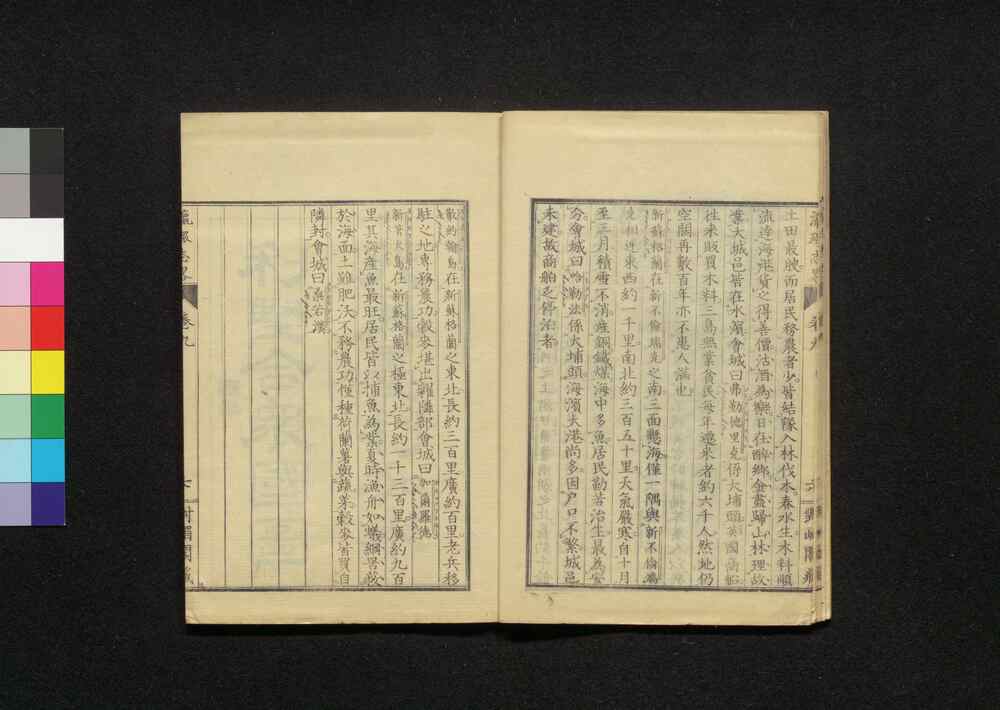 土田最腴而居民務農者少皆結隊入林伐木春水生木料順
流達海濱貨之得善價沽酒為樂日在醉鄉金盡歸山林理故
業大城邑皆在水濱會城曰弗勒德里克係大埔頭英國商船
往來販買木料三島無業貧民每年遷來者約六千人然地仍
空闊再數百年亦不患人滿也
新蘇格蘭在新不倫瑞克之南三面懸海僅一隅與新不倫瑞
克相連東西約一千里南北約三百五十里天氣嚴寒自十月
至三月積雪不消產銅鐵煤海中多魚居民勤苦治生最為安
分會城曰哈勒法係大埔頭海濱大港尚多因戶口不繁城邑
未建故商船之停泊者
散約翰島在新蘇格蘭之東北長約三百里廣約百里老兵移
駐之地專務農功穀麥堪出糶隣部會城曰加爾羅德
新著大島在新蘇格蘭之極東北長約一千三百里廣約九百
里其海產魚最旺居民皆以捕魚為業夏時漁舟如蟻網罟蔽
於海面土雖肥沃不務農功恆種荷蘭薯與蔬菜穀麥皆買自
隣封會城曰桑若漢
卷九